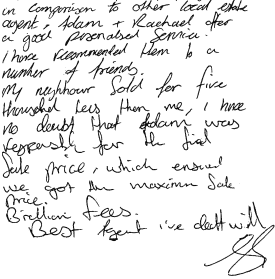 in comparison to other local estate
agent, Adam + Rachael offer
a good personalised service.
I have recommended them to a
number of friends.
My neighbour sold for five
thousand less then me, I have
no doubt that Adam was
responsible for the final
sale price, which ensured
we got the maximum sale
price.
Brilliant fees.
Best Agent i've dealt with